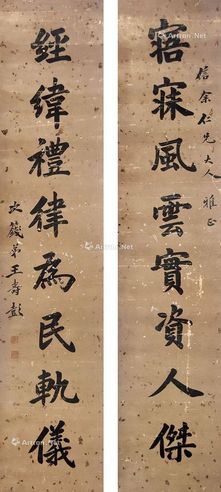 寤寐風雲實資人傑
信余仁兄大人雅正
經緯禮律爲民軌儀
次籛弟王壽彭